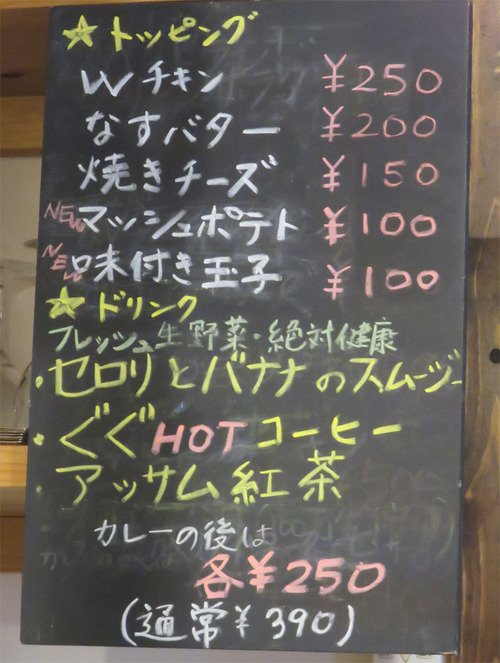 ★トッピング
Wチキン ￥250
なすバター ￥200
焼きチーズ ￥150
NEW マッシュポテト ￥100
NEW 味付き玉子 ￥100
★ドリンク
フレッシュ生野菜・絶対健康
・セロリとバナナのスムージー
・ぐぐHOTコーヒー
・アッサム紅茶
カレーの後は
各￥250
(通常￥390)